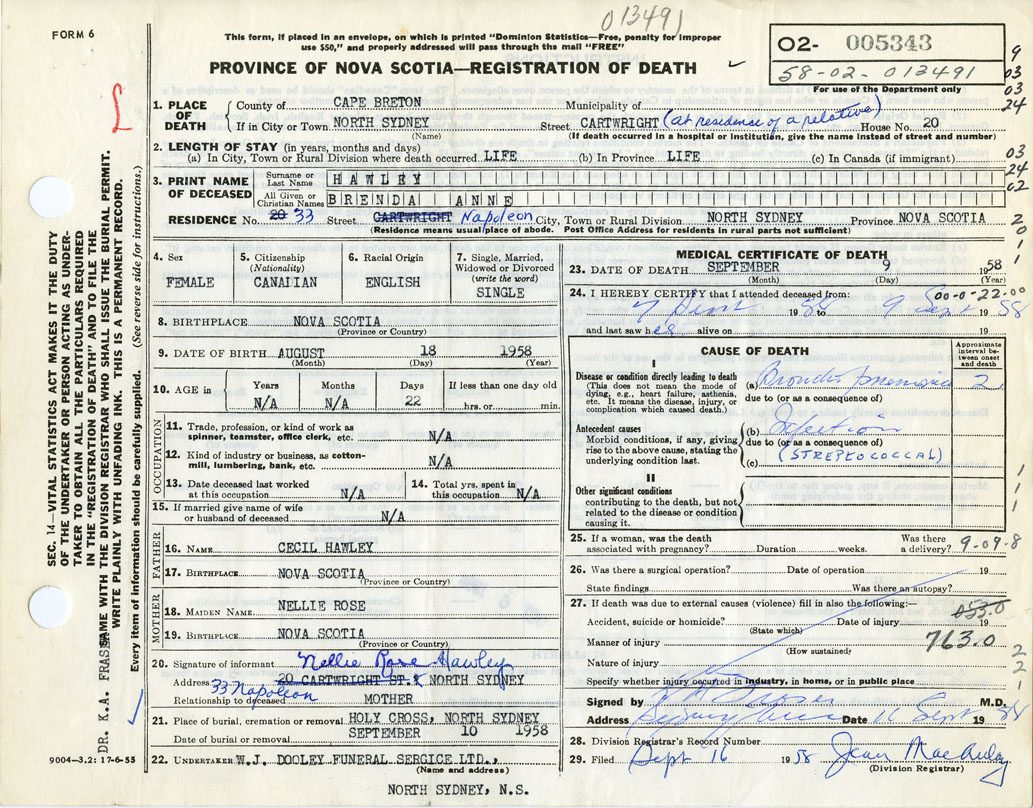 013491
FORM 6
This form, if placed in an envelope, on which is printed "Dominion Statistics—Free, penalty for improper
use $50," and properly addressed will pass through the mail "FREE"
PROVINCE OF NOVA SCOTIA—REGISTRATION OF DEATH
O2- 005343
58-02-013491
For use of the Department only
9
03
03
24
1. PLACE OF DEATH County of CAPE BRETON Municipality of
If in City or Town NORTH SYDNEY Street CARTWRIGHT (at residence of a relative) House No. 20
(Name) (If death occurred in a hospital or institution, give the name instead of street and number)
2. LENGTH OF STAY (in years, months and days)
(a) In City, Town or Rural Division where death occurred LIFE (b) In Province LIFE (c) In Canada (if immigrant)
03
24
02
3. PRINT NAME OF DECEASED Surname or Last Name HAWLEY
All Given or Christian Names BRENDA ANNE
RESIDENCE No. 20 33 Street CARTWRIGHT Napoleon City, Town or Rural Division NORTH SYDNEY Province NOVA SCOTIA
(Residence means usual place of abode. Post Office Address for residents in rural parts not sufficient)
4. Sex FEMALE
5. Citizenship (Nationality) CANADIAN
6. Racial Origin ENGLISH
7. Single, Married, Widowed or Divorced (write the word) SINGLE
8. BIRTHPLACE NOVA SCOTIA
(Province or Country)
9. DATE OF BIRTH AUGUST 18 1958
(Month) (Day) (Year)
10. AGE in Years Months Days If less than one day old
N/A N/A 22 hrs. or min.
OCCUPATION
11. Trade, profession, or kind of work as
spinner, teamster, office clerk, etc. N/A
12. Kind of industry or business, as cotton-
mill, lumbering, bank, etc. N/A
13. Date deceased last worked
at this occupation N/A
14. Total yrs. spent in
this occupation N/A
15. If married give name of wife
or husband of deceased N/A
FATHER
16. NAME CECIL HAWLEY
17. BIRTHPLACE NOVA SCOTIA
(Province or Country)
MOTHER
18. MAIDEN NAME NELLIE ROSE
19. BIRTHPLACE NOVA SCOTIA
(Province or Country)
20. Signature of informant Nellie Rose Hawley
Address 20 CARTWRIGHT ST. NORTH SYDNEY
33 Napoleon
Relationship to deceased MOTHER
21. Place of burial, cremation or removal HOLY CROSS, NORTH SYDNEY
Date of burial or removal SEPTEMBER 10 1958
22. UNDERTAKER W.J. DOOLEY FUNERAL SERGICE LTD.,
(Name and address)
NORTH SYDNEY, N.S.
MEDICAL CERTIFICATE OF DEATH
23. DATE OF DEATH SEPTEMBER 9 1958
(Month) (Day) (Year)
24. I HEREBY CERTIFY that I attended deceased from: 00-0-22-00
1958 to 9 Sept 1958
and last saw her alive on 19
CAUSE OF DEATH
Approximate interval between onset and death
I
Disease or condition directly leading to death
(This does not mean the mode of
dying, e.g., heart failure, asthenia,
etc. It means the disease, injury, or
complication which caused death.)
(a) Broncho pneumonia 2
due to (or as a consequence of)
Antecedent causes
Morbid conditions, if any, giving
rise to the above cause, stating the
underlying condition last.
(b) Infection
due to (or as a consequence of)
(STREPTOCOCCAL)
(c)
II
Other significant conditions
contributing to the death, but not
related to the disease or condition
causing it.
25. If a woman, was the death
associated with pregnancy? Duration weeks. Was there
a delivery? 9-09-8
26. Was there a surgical operation? Date of operation 19
State findings Was there an autopsy?
27. If death was due to external causes (violence) fill in also the following:— 053.0
Accident, suicide or homicide? Date of injury 19
(State which)
763.0
Manner of injury
(How sustained)
Nature of injury
Specify whether injury occurred in industry, in home, or in public place
Signed by M.D.
Address Date 11 Sept 1958
28. Division Registrar's Record Number
29. Filed Sept 16 1958 Jean MacAulay
(Division Registrar)
SEC. 14—VITAL STATISTICS ACT MAKES IT THE DUTY
OF THE UNDERTAKER OR PERSON ACTING AS UNDER-
TAKER TO OBTAIN ALL THE PARTICULARS REQUIRED
IN THE "REGISTRATION OF DEATH" AND TO FILE THE
SAME WITH THE DIVISION REGISTRAR WHO SHALL ISSUE THE BURIAL PERMIT.
WRITE PLAINLY WITH UNFADING INK. THIS IS A PERMANENT RECORD.
Every item of information should be carefully supplied. (See reverse side for instructions.)
DR. K.A. FRASER
9004—3.2: 17-6-55